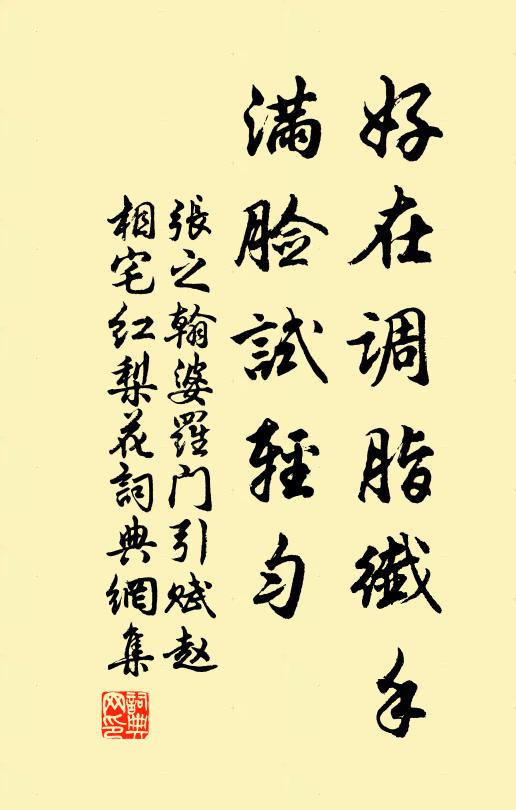 好在調脂纖手
滿臉試輕勻
張之翰婆羅门引賦赵
相宅红梨花詞典網集
詞典
网印